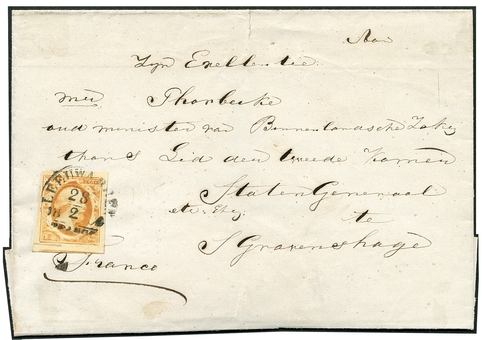 Aan
Zyn Exellentie
mr Thorbecke
oud minister van Binnenlandsche Zake
thans Lid den tweede Kamer
Staten Generaal
te
S Gravenshage
Franco
LEEUWA
28
2
FRANCO